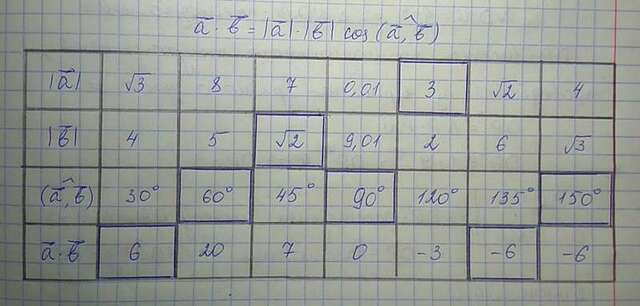 a̅ · b̅ = |a̅| · |b̅| cos (a̅,^b̅)
|a̅| √3 8 7 0,01 3 √2 4
|b̅| 4 5 √2 9,01 2 6 √3
(a̅,^b̅) 30° 60° 45° 90° 120° 135° 150°
a̅ · b̅ 6 20 7 0 -3 -6 -6